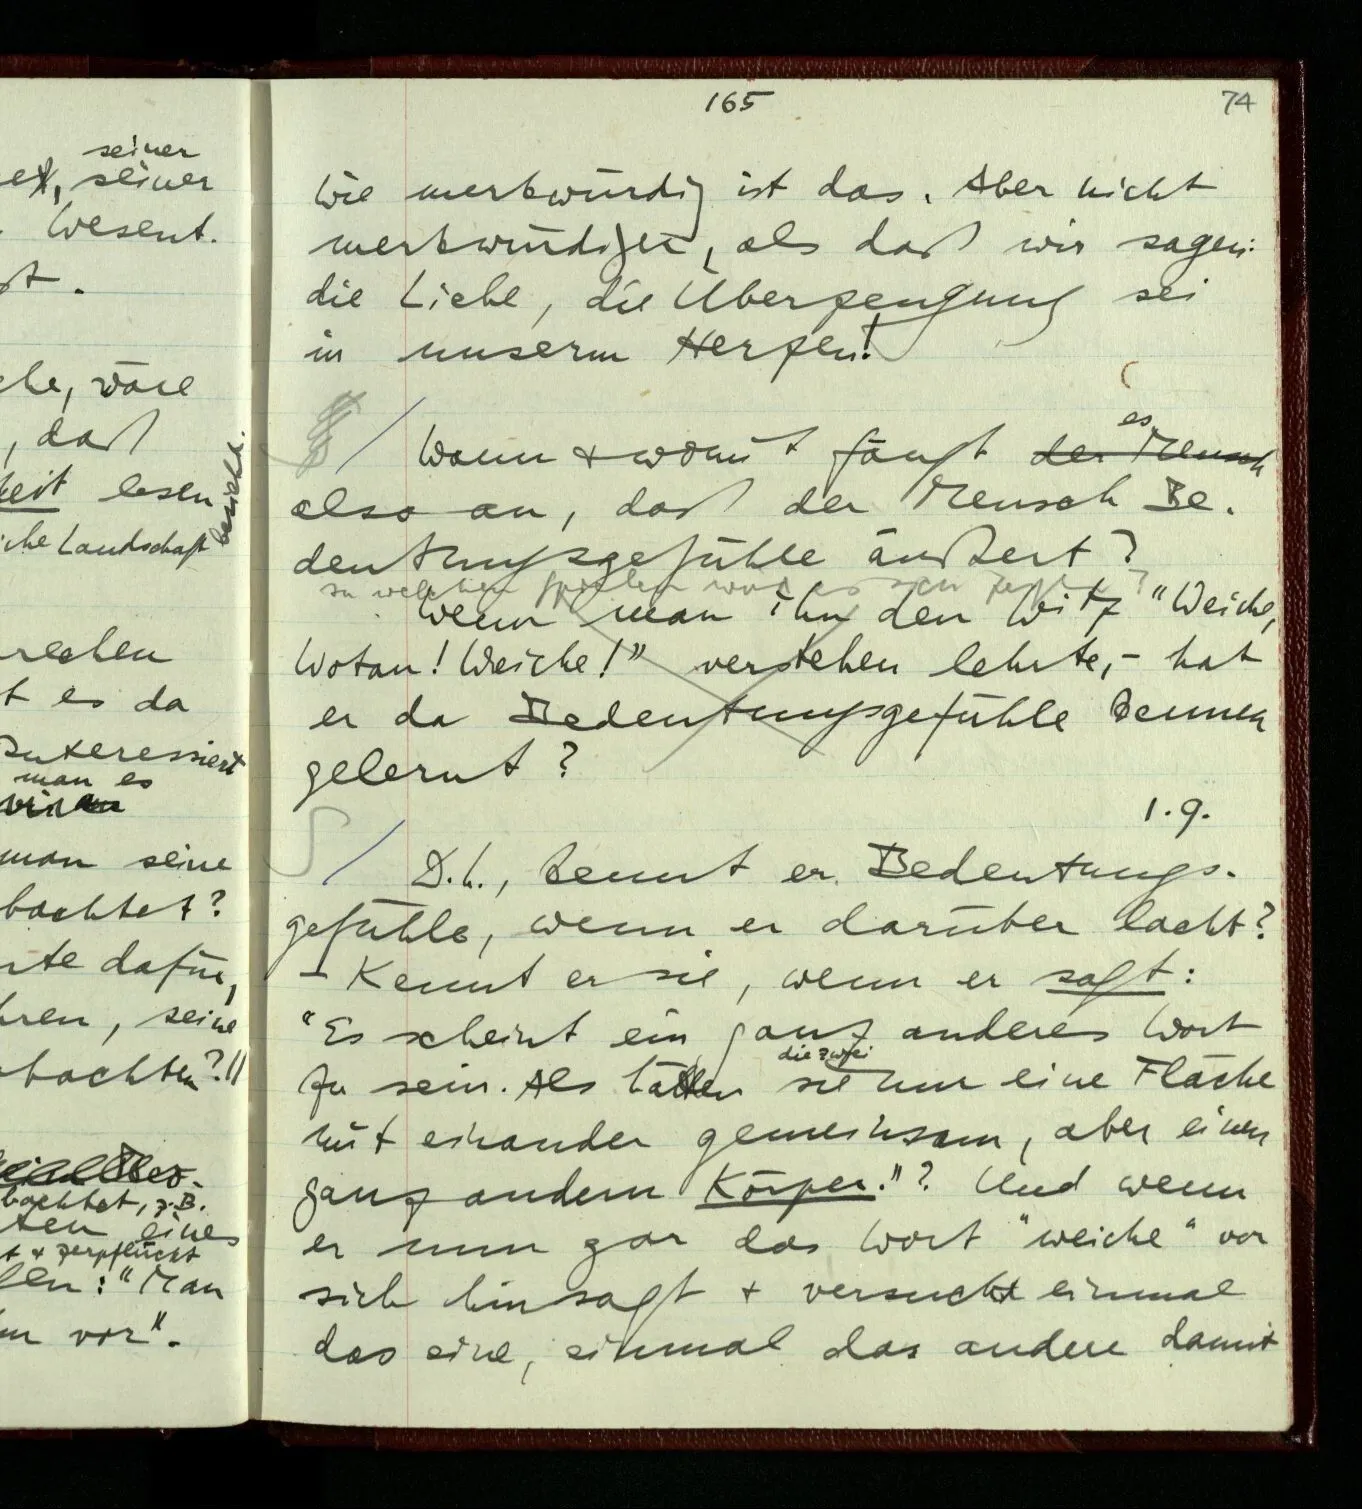 seiner
seiner
Wesent.
che, wäre
, daß
keit lesen
iche Landschaft
besieht.
rechen
t es da
Interessiert
man es
man seine
bachtet?
rte dafür,
hren, seine
obachten?"
bachtet, z.B.
ten eines
t + zerpflückt
len: "Man
vor".
165
74
Wie merkwürdig ist das. Aber nicht
merkwürdiger, als daß wir sagen:
die Liebe, die Überzeugung sei
in unserm Herzen!
§ / Wann + womit fängt der Mensch es
also an, daß der Mensch Be-
deutungsgefühle äußert?
zu welchen Spielen wird es sein
Wenn man ihn den Witz "Weiche,
Wotan! Weiche!" verstehen lehrte,- hat
er da Bedeutungsgefühle kennen
gelernt?
1.9.
S / D.h., kennt er Bedeutungs-
gefühle, wenn er darüber lacht?
– Kennt er sie, wenn er sagt:
"Es scheint ein ganz anderes Wort
zu sein. Als hätten sie die zwei nur eine Fläche
mit einander gemeinsam, aber einen
ganz andern Körper."? Und wenn
er nun gar das Wort "weiche" vor
sich hinsagt + versucht einmal
das eine, einmal das andere damit